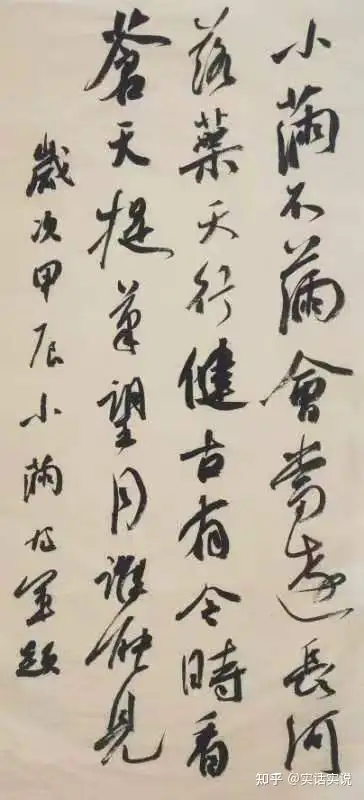 小滿不滿會當遠長河
落葉天行健古有今時看
蒼天提筆望月誰能見
歲次甲辰小滿題
知乎 @实话实说